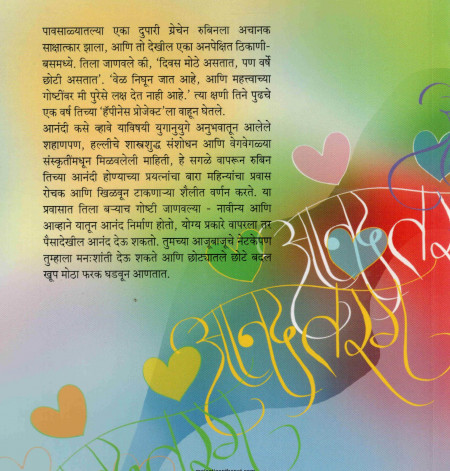 पावसाळ्यातल्या एका दुपारी ग्रेचेन रुबिनला अचानक
साक्षात्कार झाला, आणि तो देखील एका अनपेक्षित ठिकाणी-
बसमध्ये. तिला जाणवले की, 'दिवस मोठे असतात, पण वर्षे
छोटी असतात'. 'वेळ निघून जात आहे, आणि महत्त्वाच्या
गोष्टींवर मी पुरेसे लक्ष देत नाही आहे.' त्या क्षणी तिने पुढचे
एक वर्ष तिच्या 'हॅपीनेस प्रोजेक्ट'ला वाहून घेतले.
आनंदी कसे व्हावे याविषयी युगानुयुगे अनुभवातून आलेले
शहाणपण, हल्लीचे शास्त्रशुद्ध संशोधन आणि वेगवेगळ्या
संस्कृतींमधून मिळवलेली माहिती, हे सगळे वापरून रुबिन
तिच्या आनंदी होण्याच्या प्रयत्नांचा बारा महिन्यांचा प्रवास
रोचक आणि खिळवून टाकणाऱ्या शैलीत वर्णन करते. या
प्रवासात तिला बऱ्याच गोष्टी जाणवल्या - नावीन्य आणि
आव्हाने यातून आनंद निर्माण होतो, योग्य प्रकारे वापरला तर
पैसादेखील आनंद देऊ शकतो. तुमच्या आजूबाजूचे नेटकेपण
तुम्हाला मनःशांती देऊ शकते आणि छोट्यातले छोटे बदल
खूप मोठा फरक घडवून आणतात.
आनंदतरंग
आनंदतरंग